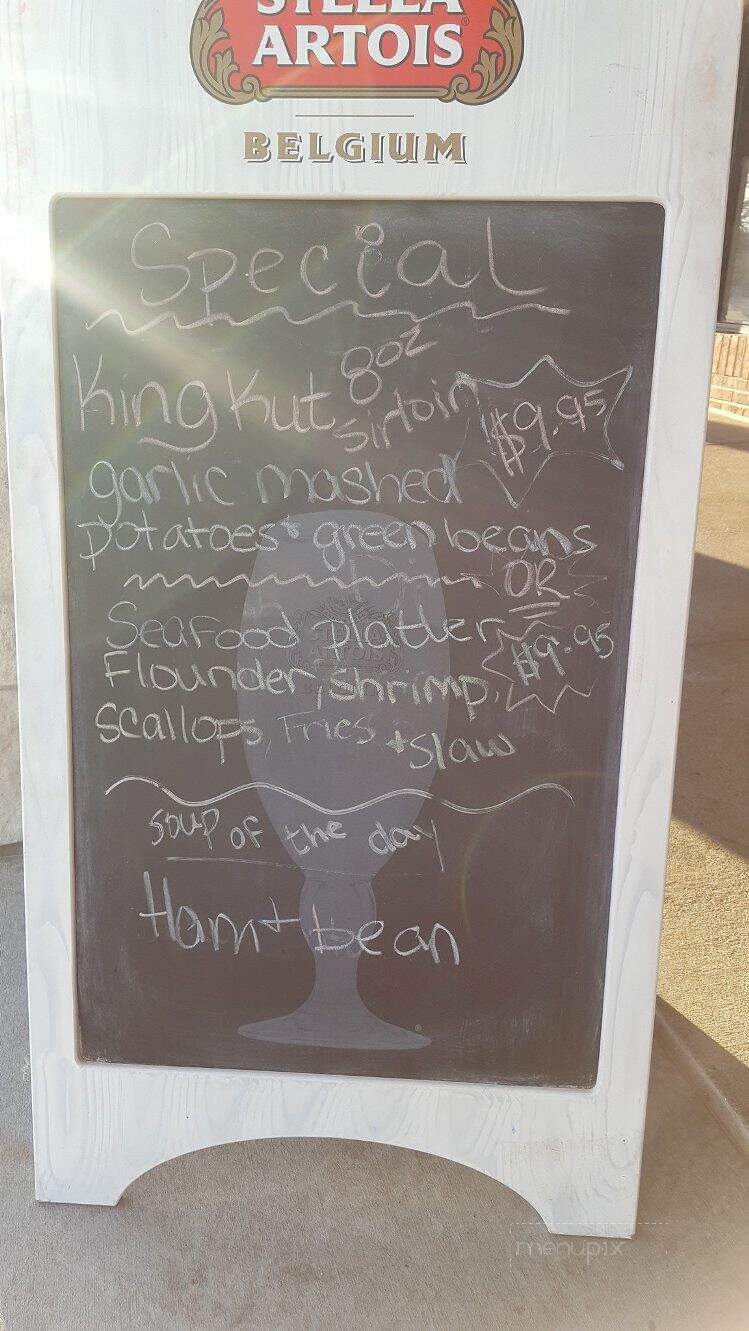 STELLA
ARTOIS
BELGIUM
Special
King Kut 8oz
Sirloin $9.95
garlic mashed
potatoes + green beans
OR
Seafood platter
$9.95
Flounder, Shrimp,
Scallops, Fries + slaw
soup of the day
Ham + bean
menupix